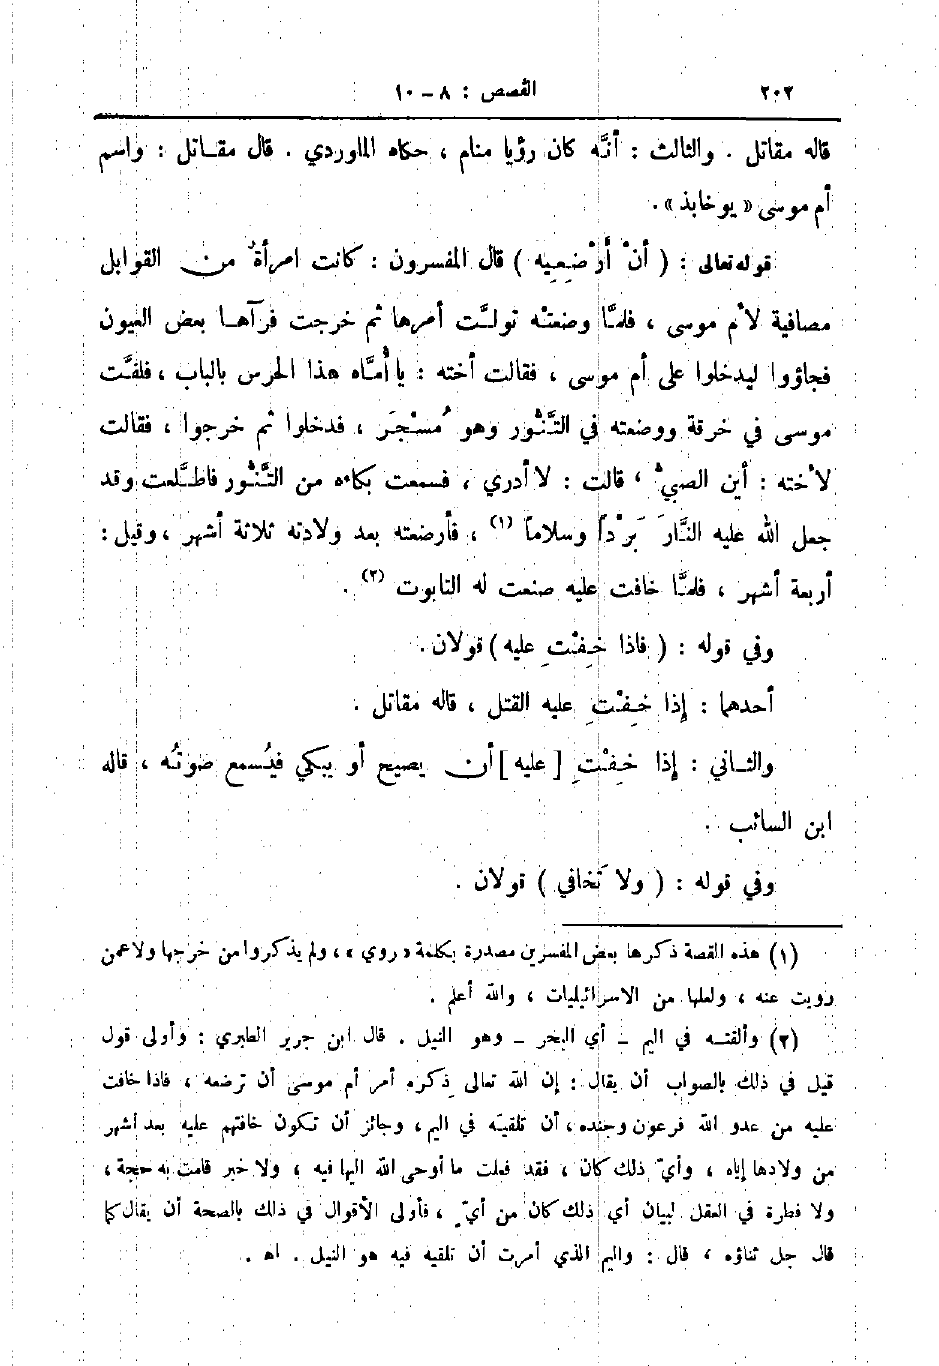 ٢٠٢ القصص : ٨ – ١٠
قاله مقاتل . والثالث : أنَّه كان رؤيا منام ، حكاه الماوردي . قال مقـاتل : واسم
أم موسى « يوخابذ » .
قوله تعالى : ( أنْ أرْضعِيه ) قال المفسرون : كانت امرأةٌ من القوابل
مصافية لأم موسى ، فلمَّا وضعتْه تولَّت أمرها ثم خرجت فرآهـا بعض العيون
فجاؤوا ليدخلوا على أم موسى ، فقالت أخته : يا أُمَّاه هذا الحرس بالباب ، فلفَّت
موسى في خرقة ووضعته في التَّنُّور وهو مُسْجَر ، فدخلوا ثم خرجوا ، فقالت
لأخته : أين الصبيُّ ، قالت : لا أدري ، فسمعت بكاءه من التَّنُّور فاطَّلعت وقد
جعل الله عليه النَّارَ بَرْداً وسلاماً (١) ، فأرضعته بعد ولادته ثلاثة أشهر ، وقيل :
أربعة أشهر ، فلمَّا خافت عليه صنعت له التابوت (٢) .
وفي قوله : ( فاذا خِفْتِ عليه ) قولان .
أحدهما : إذا خِفْتِ عليه القتل ، قاله مقاتل .
والثـاني : إذا خِفْتِ [ عليه ] أن يصيح أو يبكي فيُسمع صوتُه ، قاله
ابن السائب .
وفي قوله : ( ولا تَخافي ) قولان .
(١) هذه القصة ذكرها بعض المفسرين مصدرة بكلمة « روي » ، ولم يذكروا من خرجها ولا عمن
رويت عنه ، ولعلها من الاسرائيليات ، والله أعلم .
(٢) وألقتـه في اليم – أي البحر – وهو النيل . قال ابن جرير الطبري : وأولى قول
قيل في ذلك بالصواب أن يقال : إن الله تعالى ذكره أمر أم موسى أن ترضعه ، فاذا خافت
عليه من عدو الله فرعون وجنده ، أن تلقيَه في اليم ، وجائز أن تكون خافتهم عليه بعد أشهر
من ولادها إياه ، وأيّ ذلك كان ، فقد فعلت ما أوحى الله اليها فيه ، ولا خبر قامت به حجة ،
ولا فطرة في العقل لبيان أي ذلك كان من أيّ ، فأولى الأقوال في ذلك بالصحة أن يقال كما
قال جل ثناؤه ، قال : واليم الذي أمرت أن تلقيه فيه هو النيل . اهـ .